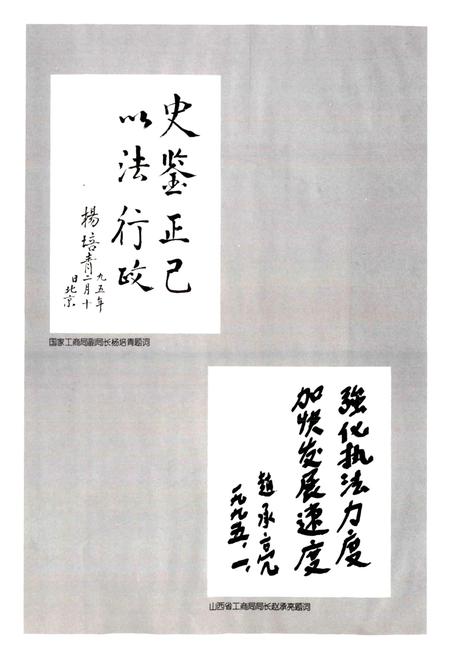 史鉴正己
以法行政
楊培青
九五年
二月十
日北京
国家工商局副局长杨培青题词
強化执法力度
加快发展速度
趙承亮
一九九五.一.
山西省工商局局长赵承亮题词